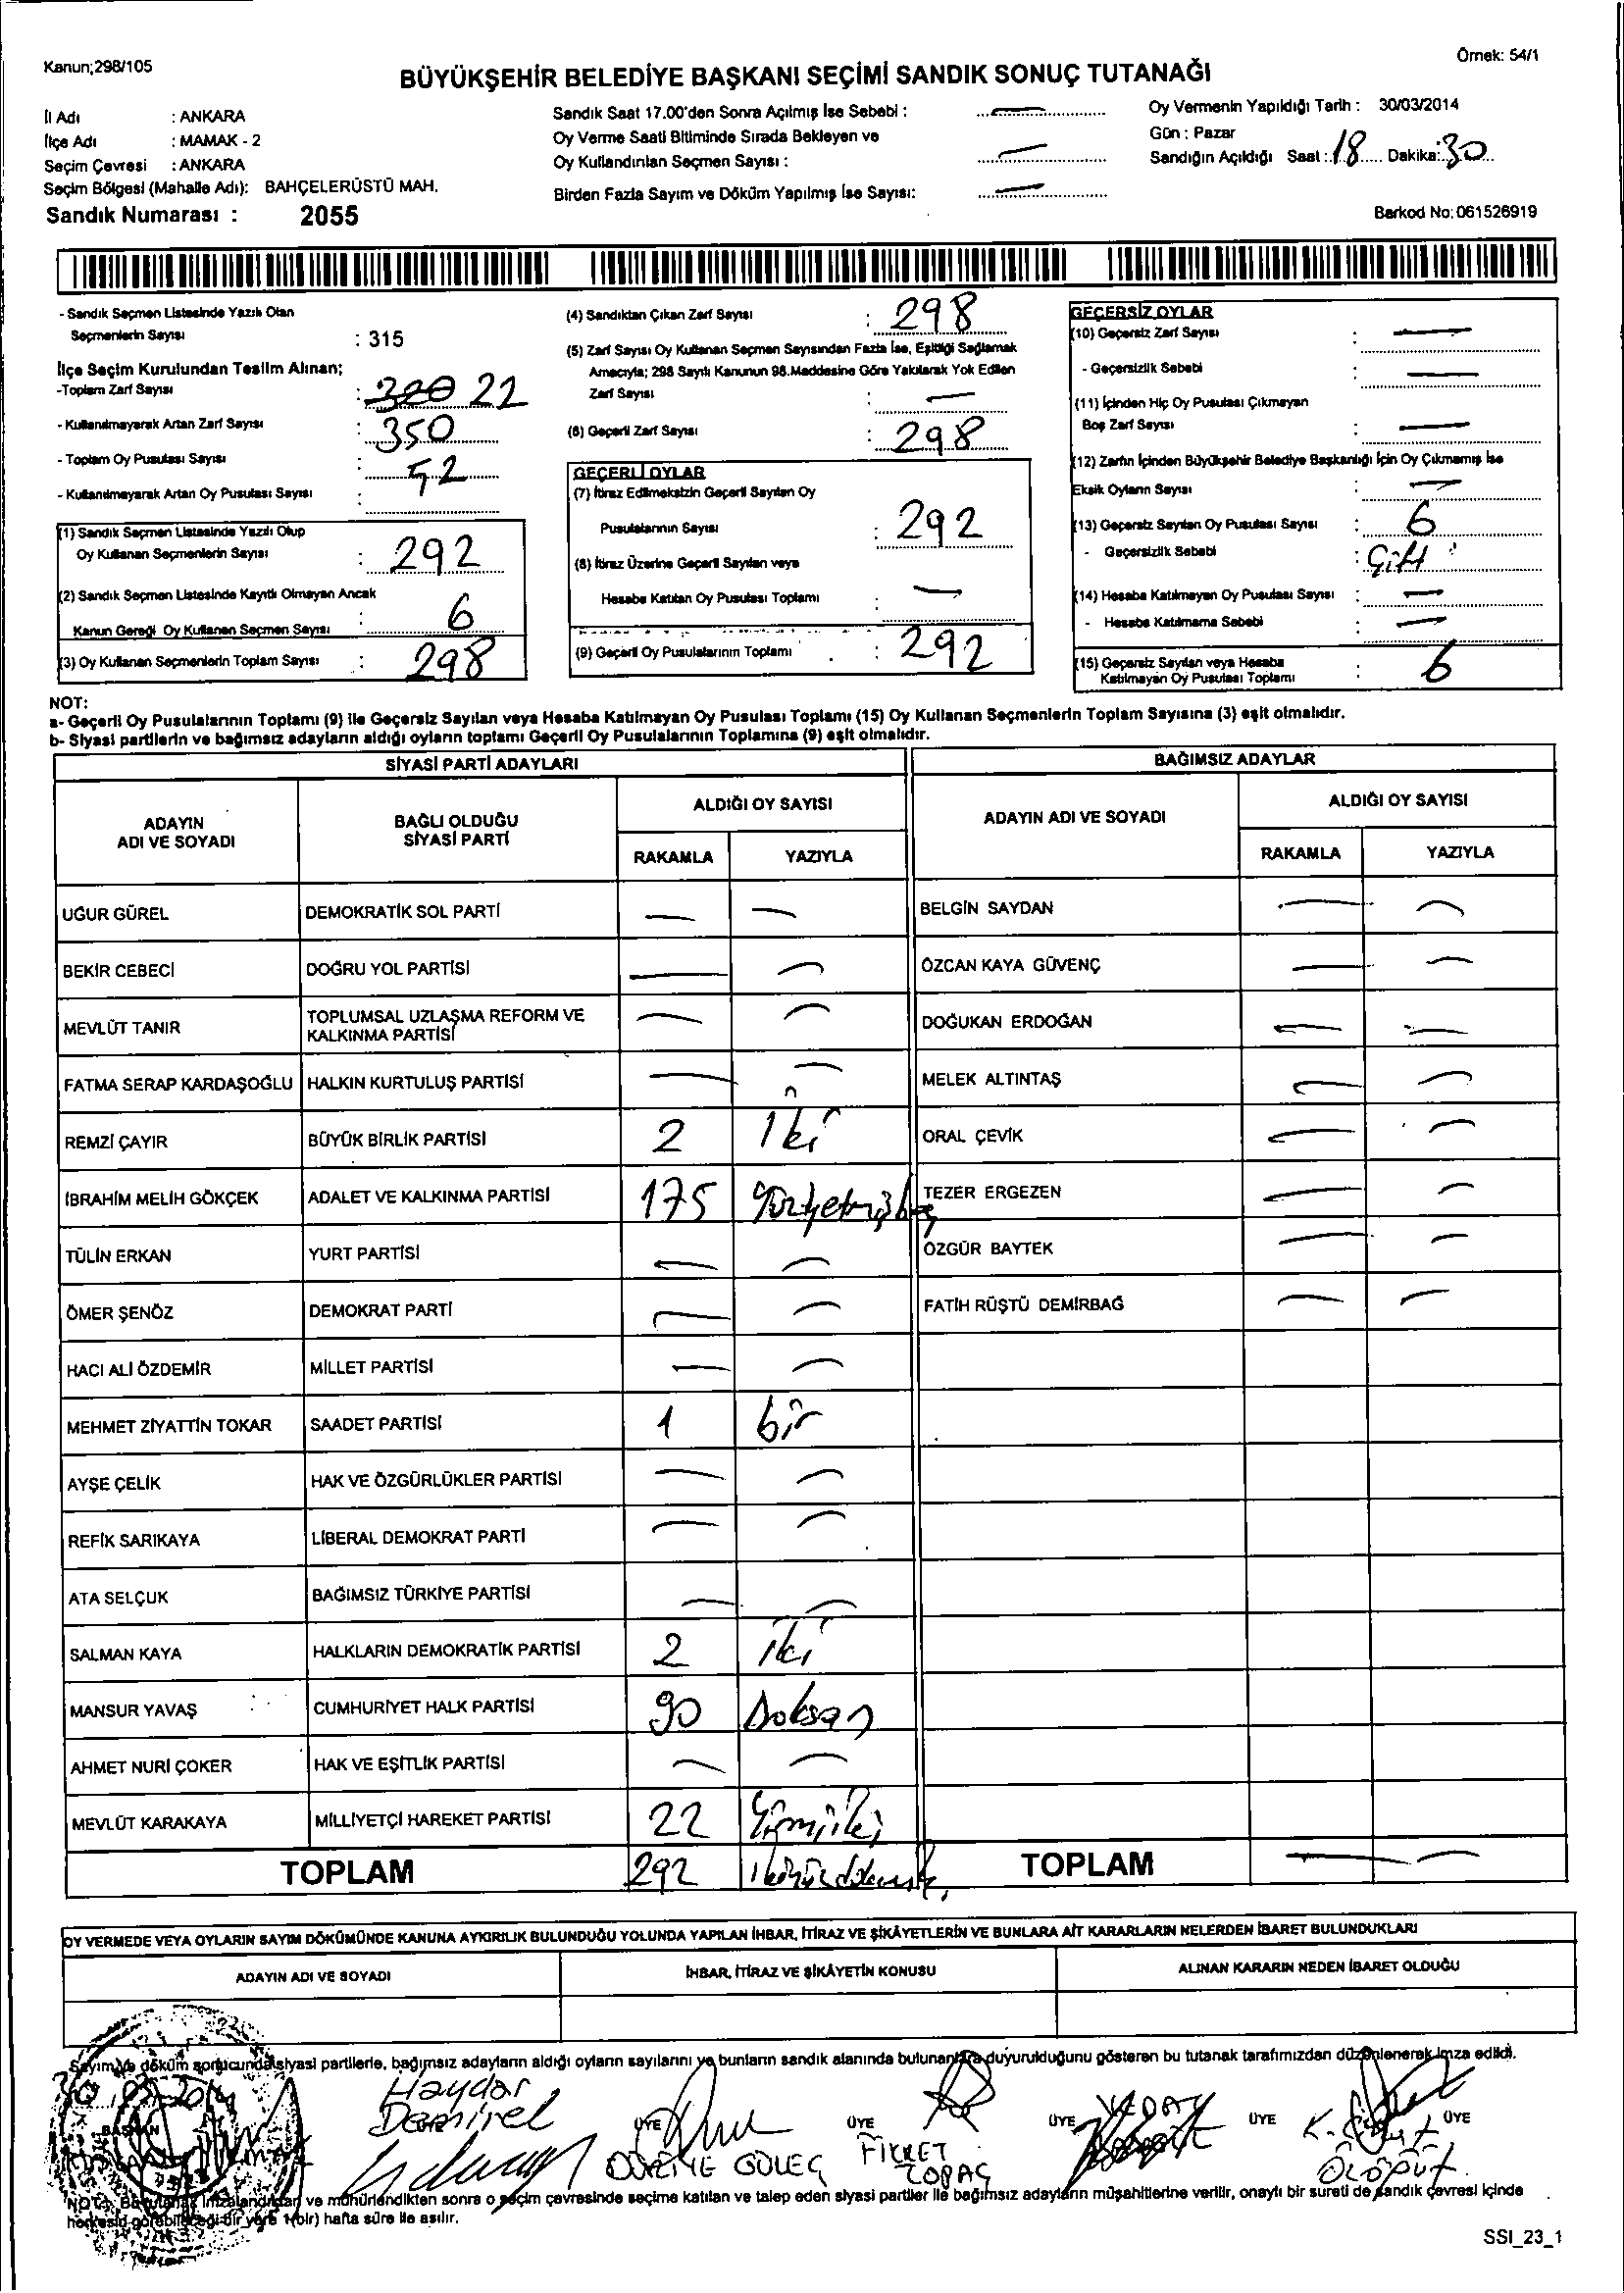 Kanun;298/105
Örnek: 54/1
BÜYÜKŞEHİR BELEDİYE BAŞKANI SEÇİMİ SANDIK SONUÇ TUTANAĞI
İl Adı : ANKARA
İlçe Adı : MAMAK - 2
Seçim Çevresi : ANKARA
Seçim Bölgesi (Mahalle Adı): BAHÇELERÜSTÜ MAH.
Sandık Numarası : 2055
Sandık Saat 17.00'den Sonra Açılmış İse Sebebi : —
Oy Verme Saati Bitiminde Sırada Bekleyen ve
Oy Kullandırılan Seçmen Sayısı : —
Birden Fazla Sayım ve Döküm Yapılmış İse Sayısı: —
Oy Vermenin Yapıldığı Tarih : 30/03/2014
Gün : Pazar
Sandığın Açıldığı Saat : 18 Dakika: 30
Barkod No: 061526919
- Sandık Seçmen Listesinde Yazılı Olan
Seçmenlerin Sayısı : 315
İlçe Seçim Kurulundan Teslim Alınan;
-Toplam Zarf Sayısı : 320 22
- Kullanılmayarak Artan Zarf Sayısı : 350
- Toplam Oy Pusulası Sayısı : 52
- Kullanılmayarak Artan Oy Pusulası Sayısı :
(1) Sandık Seçmen Listesinde Yazılı Olup
Oy Kullanan Seçmenlerin Sayısı : 292
(2) Sandık Seçmen Listesinde Kayıtlı Olmayan Ancak
Kanun Gereği Oy Kullanan Seçmen Sayısı : 6
(3) Oy Kullanan Seçmenlerin Toplam Sayısı : 298
(4) Sandıktan Çıkan Zarf Sayısı : 298
(5) Zarf Sayısı Oy Kullanan Seçmen Sayısından Fazla İse, Eşitliği Sağlamak
Amacıyla; 298 Sayılı Kanunun 98.Maddesine Göre Yakılarak Yok Edilen
Zarf Sayısı : —
(6) Geçerli Zarf Sayısı : 298
GEÇERLİ OYLAR
(7) İtiraz Edilmeksizin Geçerli Sayılan Oy
Pusulalarının Sayısı : 292
(8) İtiraz Üzerine Geçerli Sayılan veya
Hesaba Katılan Oy Pusulası Toplamı : —
(9) Geçerli Oy Pusulalarının Toplamı : 292
GEÇERSİZ OYLAR
(10) Geçersiz Zarf Sayısı : —
- Geçersizlik Sebebi : —
(11) İçinden Hiç Oy Pusulası Çıkmayan
Boş Zarf Sayısı : —
(12) Zarfın İçinden Büyükşehir Belediye Başkanlığı İçin Oy Çıkmamış İse
Eksik Oyların Sayısı : —
(13) Geçersiz Sayılan Oy Pusulası Sayısı : 6
- Geçersizlik Sebebi : Çift
(14) Hesaba Katılmayan Oy Pusulası Sayısı : —
- Hesaba Katılmama Sebebi : —
(15) Geçersiz Sayılan veya Hesaba
Katılmayan Oy Pusulası Toplamı : 6
NOT:
a- Geçerli Oy Pusulalarının Toplamı (9) ile Geçersiz Sayılan veya Hesaba Katılmayan Oy Pusulası Toplamı (15) Oy Kullanan Seçmenlerin Toplam Sayısına (3) eşit olmalıdır.
b- Siyasi partilerin ve bağımsız adayların aldığı oyların toplamı Geçerli Oy Pusulalarının Toplamına (9) eşit olmalıdır.
SİYASİ PARTİ ADAYLARI
ADAYIN ADI VE SOYADI
BAĞLI OLDUĞU SİYASİ PARTİ
ALDIĞI OY SAYISI
RAKAMLA YAZIYLA
UĞUR GÜREL DEMOKRATİK SOL PARTİ — —
BEKİR CEBECİ DOĞRU YOL PARTİSİ — —
MEVLÜT TANIR TOPLUMSAL UZLAŞMA REFORM VE KALKINMA PARTİSİ — —
FATMA SERAP KARDAŞOĞLU HALKIN KURTULUŞ PARTİSİ — —
REMZİ ÇAYIR BÜYÜK BİRLİK PARTİSİ 2 İki
İBRAHİM MELİH GÖKÇEK ADALET VE KALKINMA PARTİSİ 175 Yüzyetmişbeş
TÜLİN ERKAN YURT PARTİSİ — —
ÖMER ŞENÖZ DEMOKRAT PARTİ — —
HACI ALİ ÖZDEMİR MİLLET PARTİSİ — —
MEHMET ZİYATTİN TOKAR SAADET PARTİSİ 1 bir
AYŞE ÇELİK HAK VE ÖZGÜRLÜKLER PARTİSİ — —
REFİK SARIKAYA LİBERAL DEMOKRAT PARTİ — —
ATA SELÇUK BAĞIMSIZ TÜRKİYE PARTİSİ — —
SALMAN KAYA HALKLARIN DEMOKRATİK PARTİSİ 2 iki
MANSUR YAVAŞ CUMHURİYET HALK PARTİSİ 90 Doksan
AHMET NURİ ÇOKER HAK VE EŞİTLİK PARTİSİ — —
MEVLÜT KARAKAYA MİLLİYETÇİ HAREKET PARTİSİ 22 Yirmiiki
TOPLAM 292
BAĞIMSIZ ADAYLAR
ADAYIN ADI VE SOYADI
ALDIĞI OY SAYISI
RAKAMLA YAZIYLA
BELGİN SAYDAN — —
ÖZCAN KAYA GÜVENÇ — —
DOĞUKAN ERDOĞAN — —
MELEK ALTINTAŞ — —
ORAL ÇEVİK — —
TEZER ERGEZEN — —
ÖZGÜR BAYTEK — —
FATİH RÜŞTÜ DEMİRBAĞ — —
TOPLAM — —
OY VERMEDE VEYA OYLARIN SAYIM DÖKÜMÜNDE KANUNA AYKIRILIK BULUNDUĞU YOLUNDA YAPILAN İHBAR, İTİRAZ VE ŞİKÂYETLERİN VE BUNLARA AİT KARARLARIN NELERDEN İBARET BULUNDUKLARI
ADAYIN ADI VE SOYADI
İHBAR, İTİRAZ VE ŞİKÂYETİN KONUSU
ALINAN KARARIN NEDEN İBARET OLDUĞU
Sayım ve döküm sonucunda siyasi partilerle, bağımsız adayların aldığı oyların sayılarını ve bunların sandık alanında bulunanlara duyurulduğunu gösteren bu tutanak tarafımızdan düzenlenerek imza edildi.
BAŞKAN
Haydar Demirel
ÜYE GÜLEÇ
ÜYE FİKRET TOPAÇ
ÜYE VEDAT
ÜYE
ÜYE
NOTA: Bu tutanak imzalandıktan ve mühürlendikten sonra o seçim çevresinde seçime katılan ve talep eden siyasi partiler ile bağımsız adayların müşahitlerine verilir, onaylı bir sureti de sandık çevresi içinde
herkesin görebileceği bir yere 1(bir) hafta süre ile asılır.
SSI_23_1